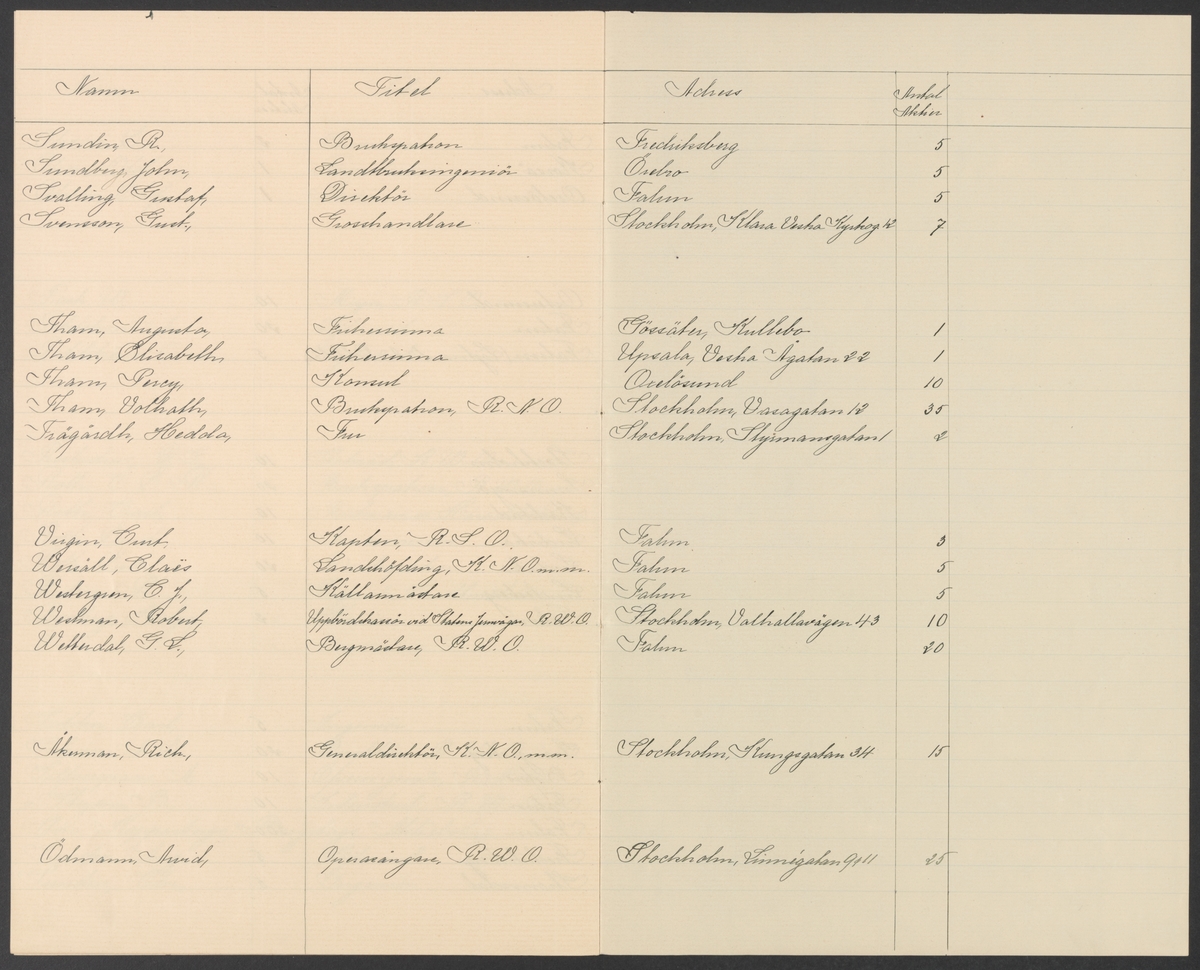 Namn Titel Adress Antal Aktier
Sundin, R., Brukspatron Fredriksberg 5
Sundberg, John, Landtbruksingeniör Örebro 5
Svalling, Gustaf, Direktör Falun 5
Svensson, Gust., Grosshandlare Stockholm, Klara Vestra Kyrkog 12 7
Tham, Augusta, Friherrinna Gössäter, Kullebo 1
Tham, Elisabeth, Friherrinna Upsala, Vestra Ågatan 22 1
Tham, Percy, Konsul Oxelösund 10
Tham, Volrath, Brukspatron, R. N. O. Stockholm, Vasagatan 12 35
Trägårdh, Hedda, Fru Stockholm, Styrmansgatan 1 2
Virgin, Curt. Kapten, R. S. O. Falun 3
Wersäll, Claës Landshöfding, K. N. O. m.m. Falun 5
Westergren, C. J., Källarmästare Falun 5
Westman, Robert, Uppbördskassör vid Statens Jernvägar, R. W. O. Stockholm, Valhallavägen 43 10
Wetterdal, G. L., Bergmästare, R. W. O. Falun 20
Åkerman, Rich, Generaldirektör, K. N. O., m.m. Stockholm, Kungsgatan 34 15
Ödmann, Arvid, Operasångare, R. W. O. Stockholm, Linnégatan 9 & 11 25